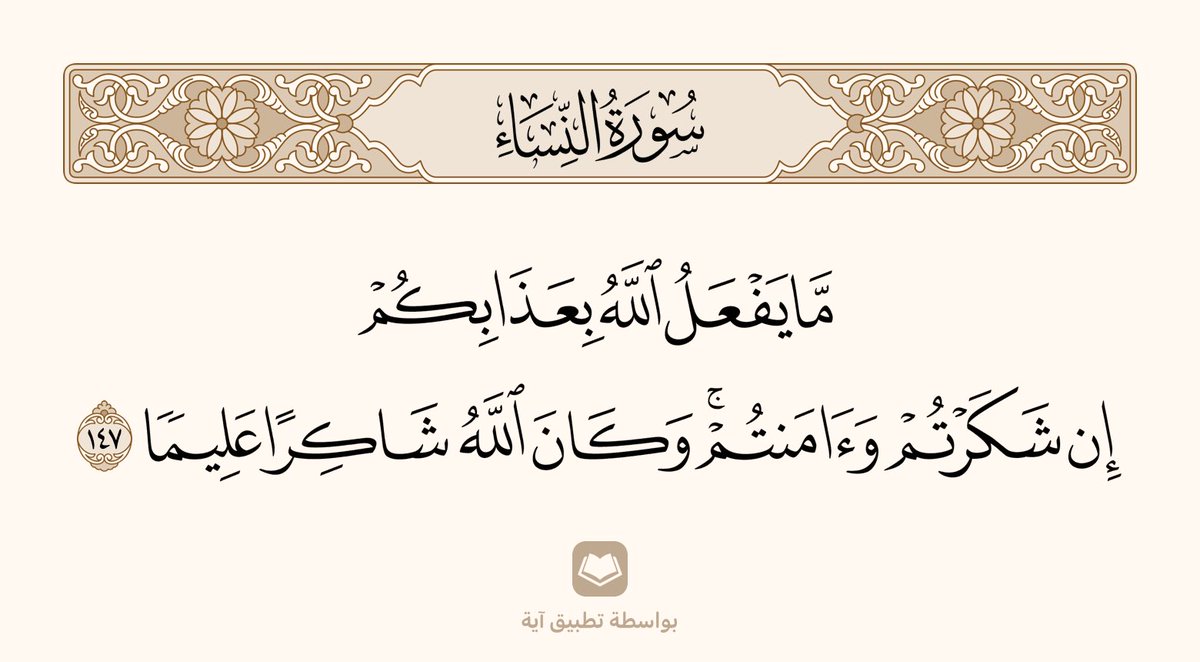 سُورَةُ النِّسَاءِ
مَّا يَفْعَلُ ٱللَّهُ بِعَذَابِكُمْ
إِن شَكَرْتُمْ وَءَامَنتُمْۚ وَكَانَ ٱللَّهُ شَاكِرًا عَلِيمًا ١٤٧
بواسطة تطبيق آية